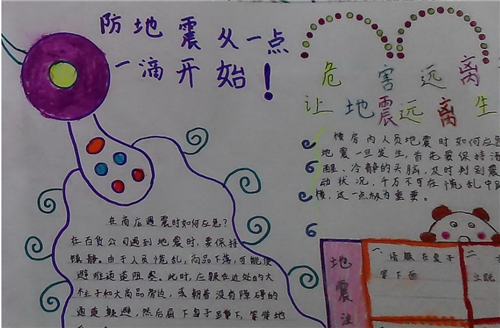 防地震从一点
一滴开始！
危害远离
让地震远离生
楼房内人员地震时如何应急？
地震一旦发生，首先要保持清
醒、冷静的头脑，及时判别震
动状况，千万不可在慌乱中
楼，这一点极为重要。
在商店遇震时如何应急？
在百货公司遇到地震时，要保持
镇静。由于人员慌乱，商品下落，可能使
避难通道阻塞。此时，应躲在近处的大
柱子和大商品旁边，或朝着没有障碍的
通道躲避，然后屈下身子蹲下，等待地
地震注
一 桌子
下面
二